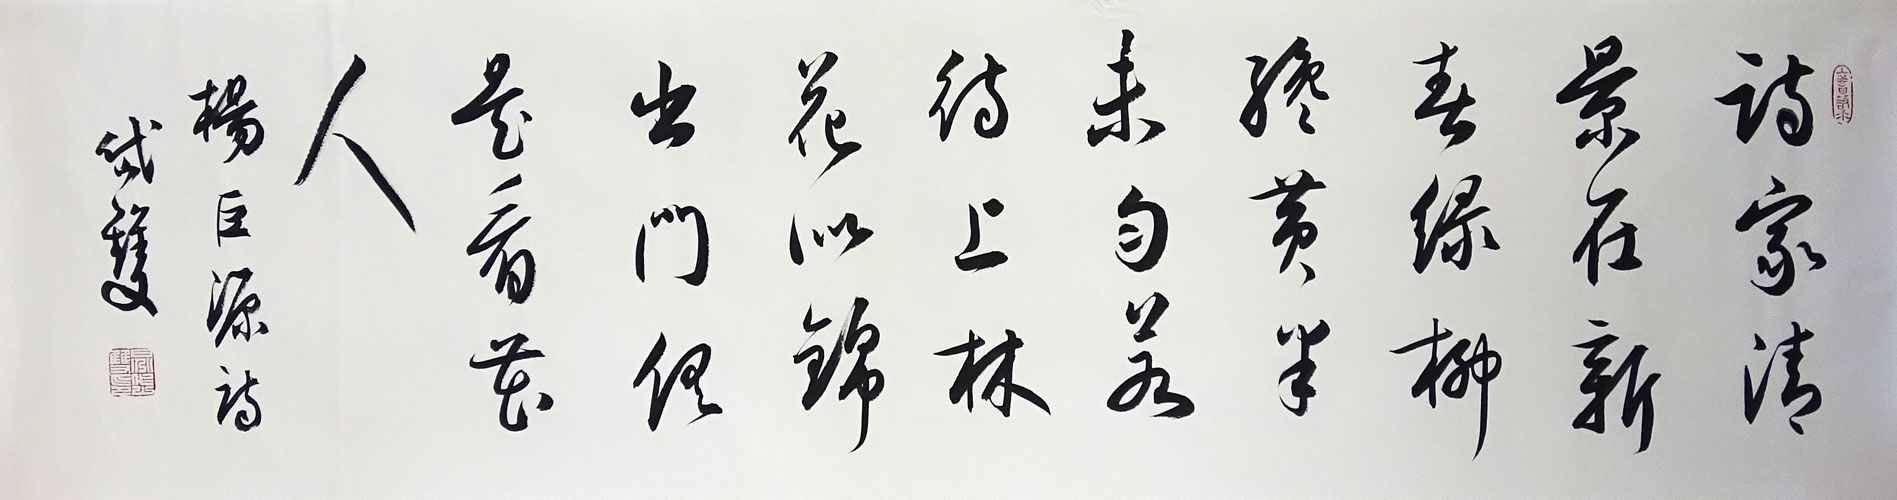 詩家清
景在新
春綠柳
纔黃半
未勻若
待上林
花似錦
出門俱
是看花
人
楊巨源詩
岱雙